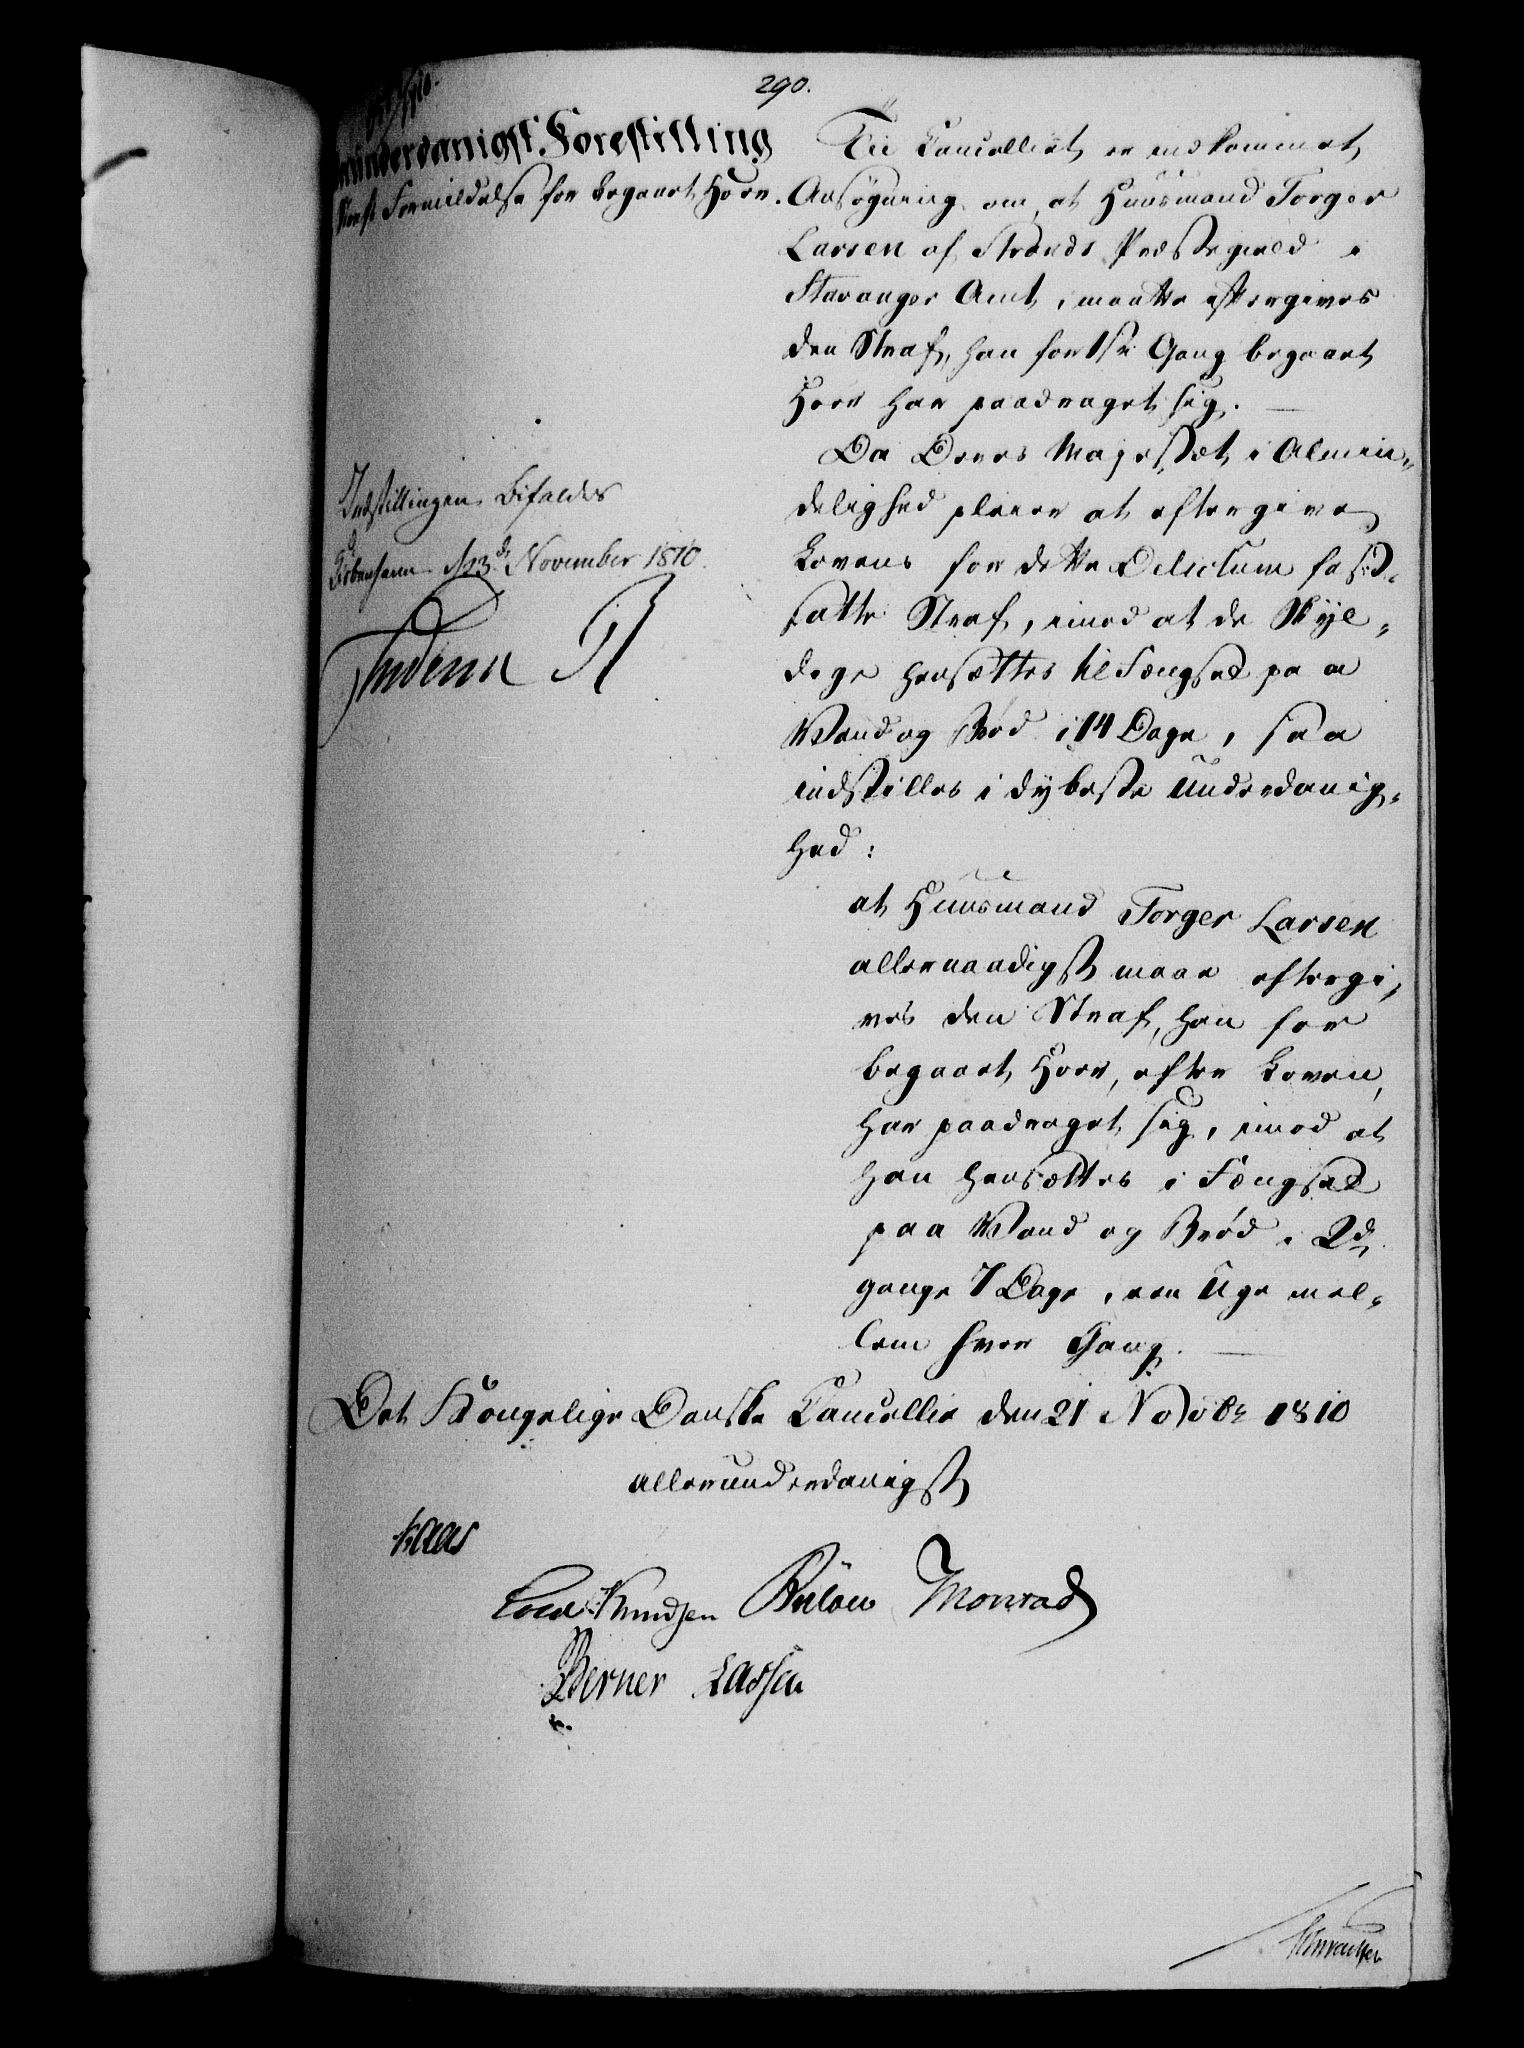 290.
Forestilling
Formildelse for begaaet Hoer.
Til Cancelliet er indkommet
Ansøgning om, at Huusmand Torger
Larsen af Strands Præstegield i
Stavanger Amt, maatte eftergives
den Straf, han for 1ste Gang begaaet
Hoer har paadraget sig. —
Da Deres Majestæt i Almin„
delighed pleier at eftergive
Lovens for dette Delictum fast„
satte Straf, imod at de Skyl„
dige hensættes til Fængsel paa
Vand og Brød i 14 Dage, saa
indstilles i dybeste Underdanig„
hed:
at Huusmand Torger Larsen
allernaadigst maae eftergi„
ves den Straf, han for
begaaet Hoer, efter Loven,
har paadraget sig, imod at
han hensættes i Fængsel
paa Vand og Brød i 2de
gange 7 Dage, een Uge mel„
lem hver Gang. —
Indstillingen bifaldes
Kiøbenhavn d. 23de November 1810.
Frideric R
Det Kongelige Danske Cancellie den 21 Novbr 1810
allerunderdanigst
Kaas
Cold Knudsen Bülow Monrad
Berner Lassen